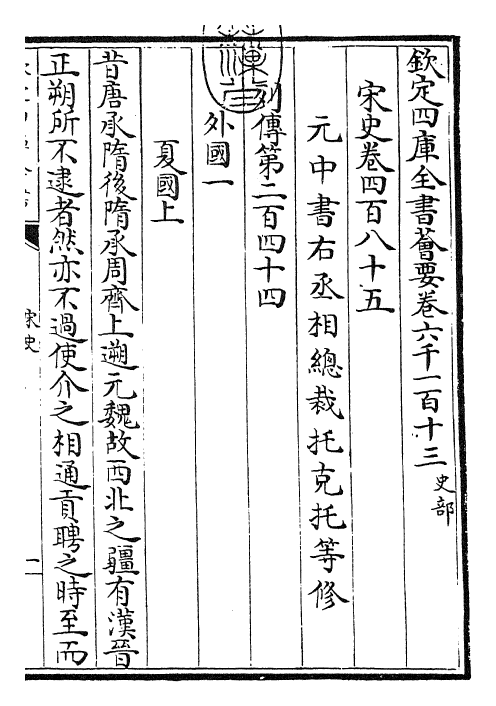 欽定四庫全書薈要卷六千一百十三 史部
宋史卷四百八十五
元中書右丞相總裁托克托等修
列傳第二百四十四
外國一
夏國上
昔唐承隋後隋承周齊上遡元魏故西北之疆有漢晉
正朔所不逮者然亦不過使介之相通貢聘之時至而
宋史
一